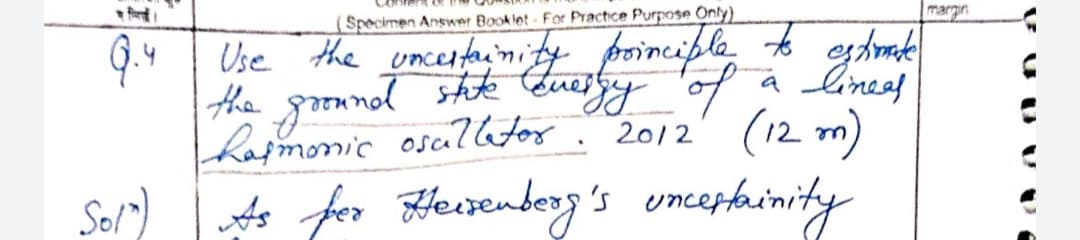 (Specimen Answer Booklet - For Practice Purpose Only)
margin
Q.4 Use the uncertainity principle to estimate
the ground state energy of a linear
harmonic oscillator. 2012 (12 m)
Sol^n) As per Heisenberg's uncertainity